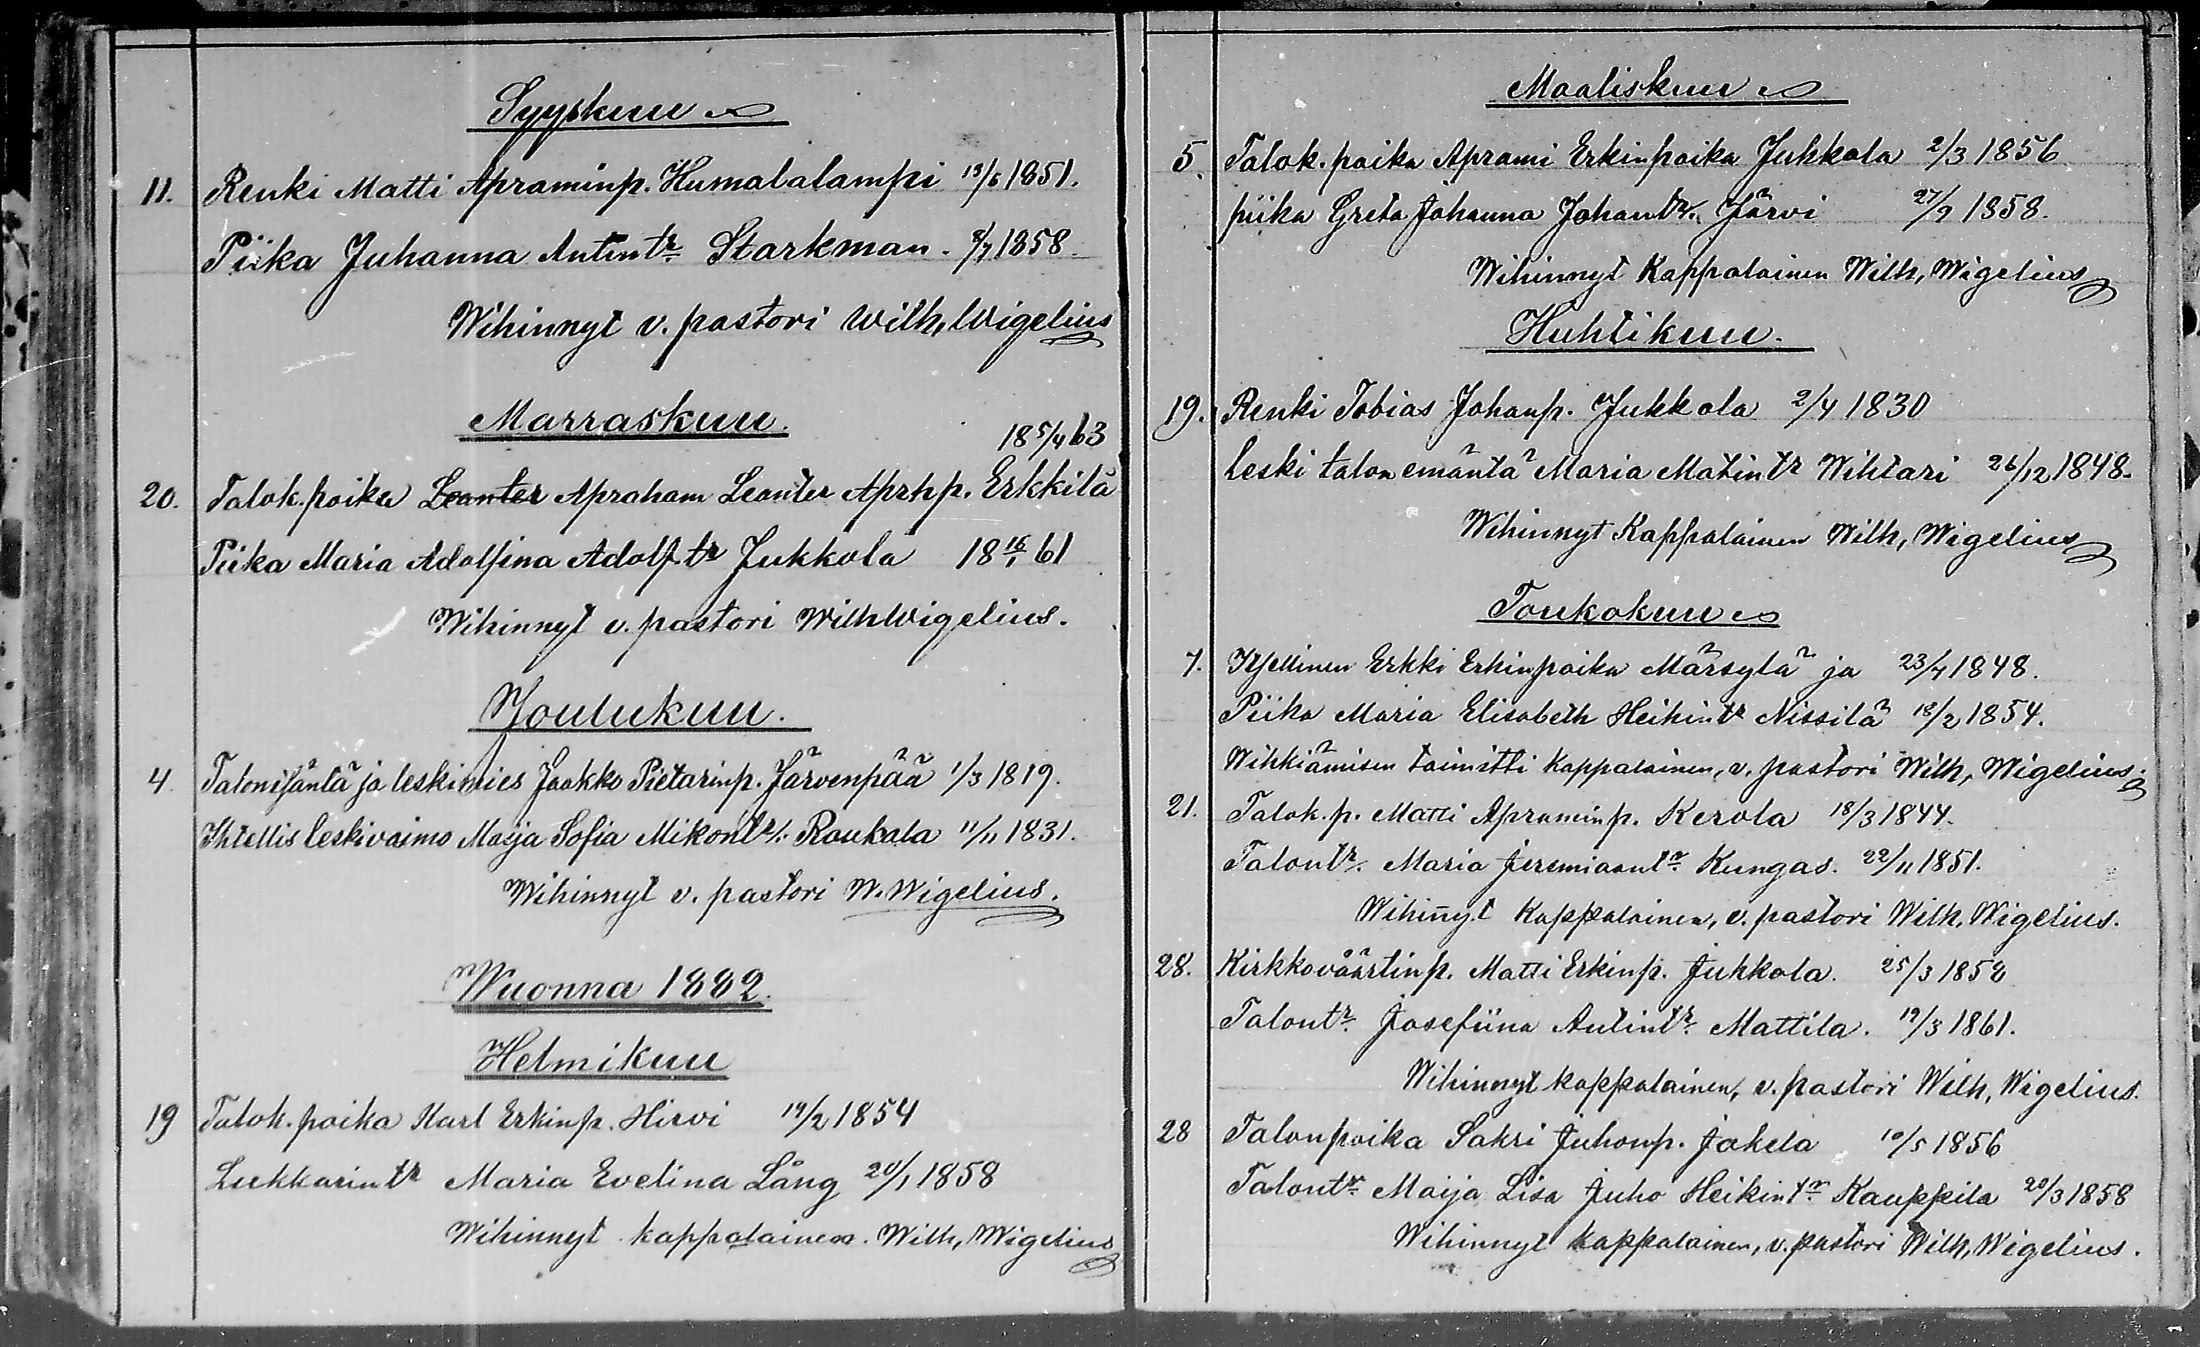 Syyskuu
11. Renki Matti Apraminp. Humalalampi 13/6 1851.
Piika Juhanna Antintr. Starkman. 8/7 1858
Wihinnyt v. pastori Wilh, Wigelius
Marraskuu.
18 5/4 63
20. Talok. poika Leanter Apraham Leanter Aprhp. Erkkilä
Piika Maria Adolfina Adolf.tr Jukkola 18 16/1 61
Wihinnyt v. pastori Wilh Wigelius.
Joulukuu.
4. Talonisäntä ja leskimies Jaakko Pietarinp. Järvenpää 1/3 1819.
Ihtellis leskivaimo Maija Sofia Mikontr/. Raukala 11/11 1831.
Wihinnyt v. pastori W. Wigelius.
Wuonna 1882.
Helmikuu
19 Talok. poika Karl Erkinp. Hirvi 19/2 1854
Lukkarintr Maria Evelina Lång 20/1 1858
Wihinnyt kappalainen. Wilh, Wigelius
Maaliskuu
5. Talok. poika Aprami Erkinpoika Jukkola 2/3 1856
piika Greta Johanna Johantr/. Järvi 27/9 1858.
Wihinnyt Kappalainen Wilh, Wigelius
Huhtikuu.
19. Renki Tobias Johanp. Jukkola 2/4 1830
leski talon emäntä Maria Matintr Wihtari 26/12 1848.
Wihinnyt Kappalainen Wilh, Wigelius
Toukokuu
7. Itsellinen Erkki Erkinpoika Märsylä ja 23/4 1848.
Piika Maria Elisabeth Heikintr Nissilä 18/2 1854.
Wihkiämisen toimitti kappalainen, v. pastori Wilh, Wigelius.
21. Talok. p. Matti Apraminp. Kerola 18/3 1844.
Talontr. Maria Jeremiaantr. Kungas. 22/11 1851.
Wihin̄yt Kappalainen, v. pastori Wilh. Wigelius.
28. Kirkkoväärtinp. Matti Erkinp. Jukkola. 25/3 1858
Talontr. Josefiina Antintr. Mattila. 19/3 1861.
Wihinnyt kappalainen, v. pastori Wilh, Wigelius.
28 Talonpoika Sakri Juhonp. Jakela 10/5 1856
Talontr. Maija Lisa Juho Heikintr. Kauppila 20/3 1858
Wihinnyt kappalainen, v. pastori Wilh, Wigelius.